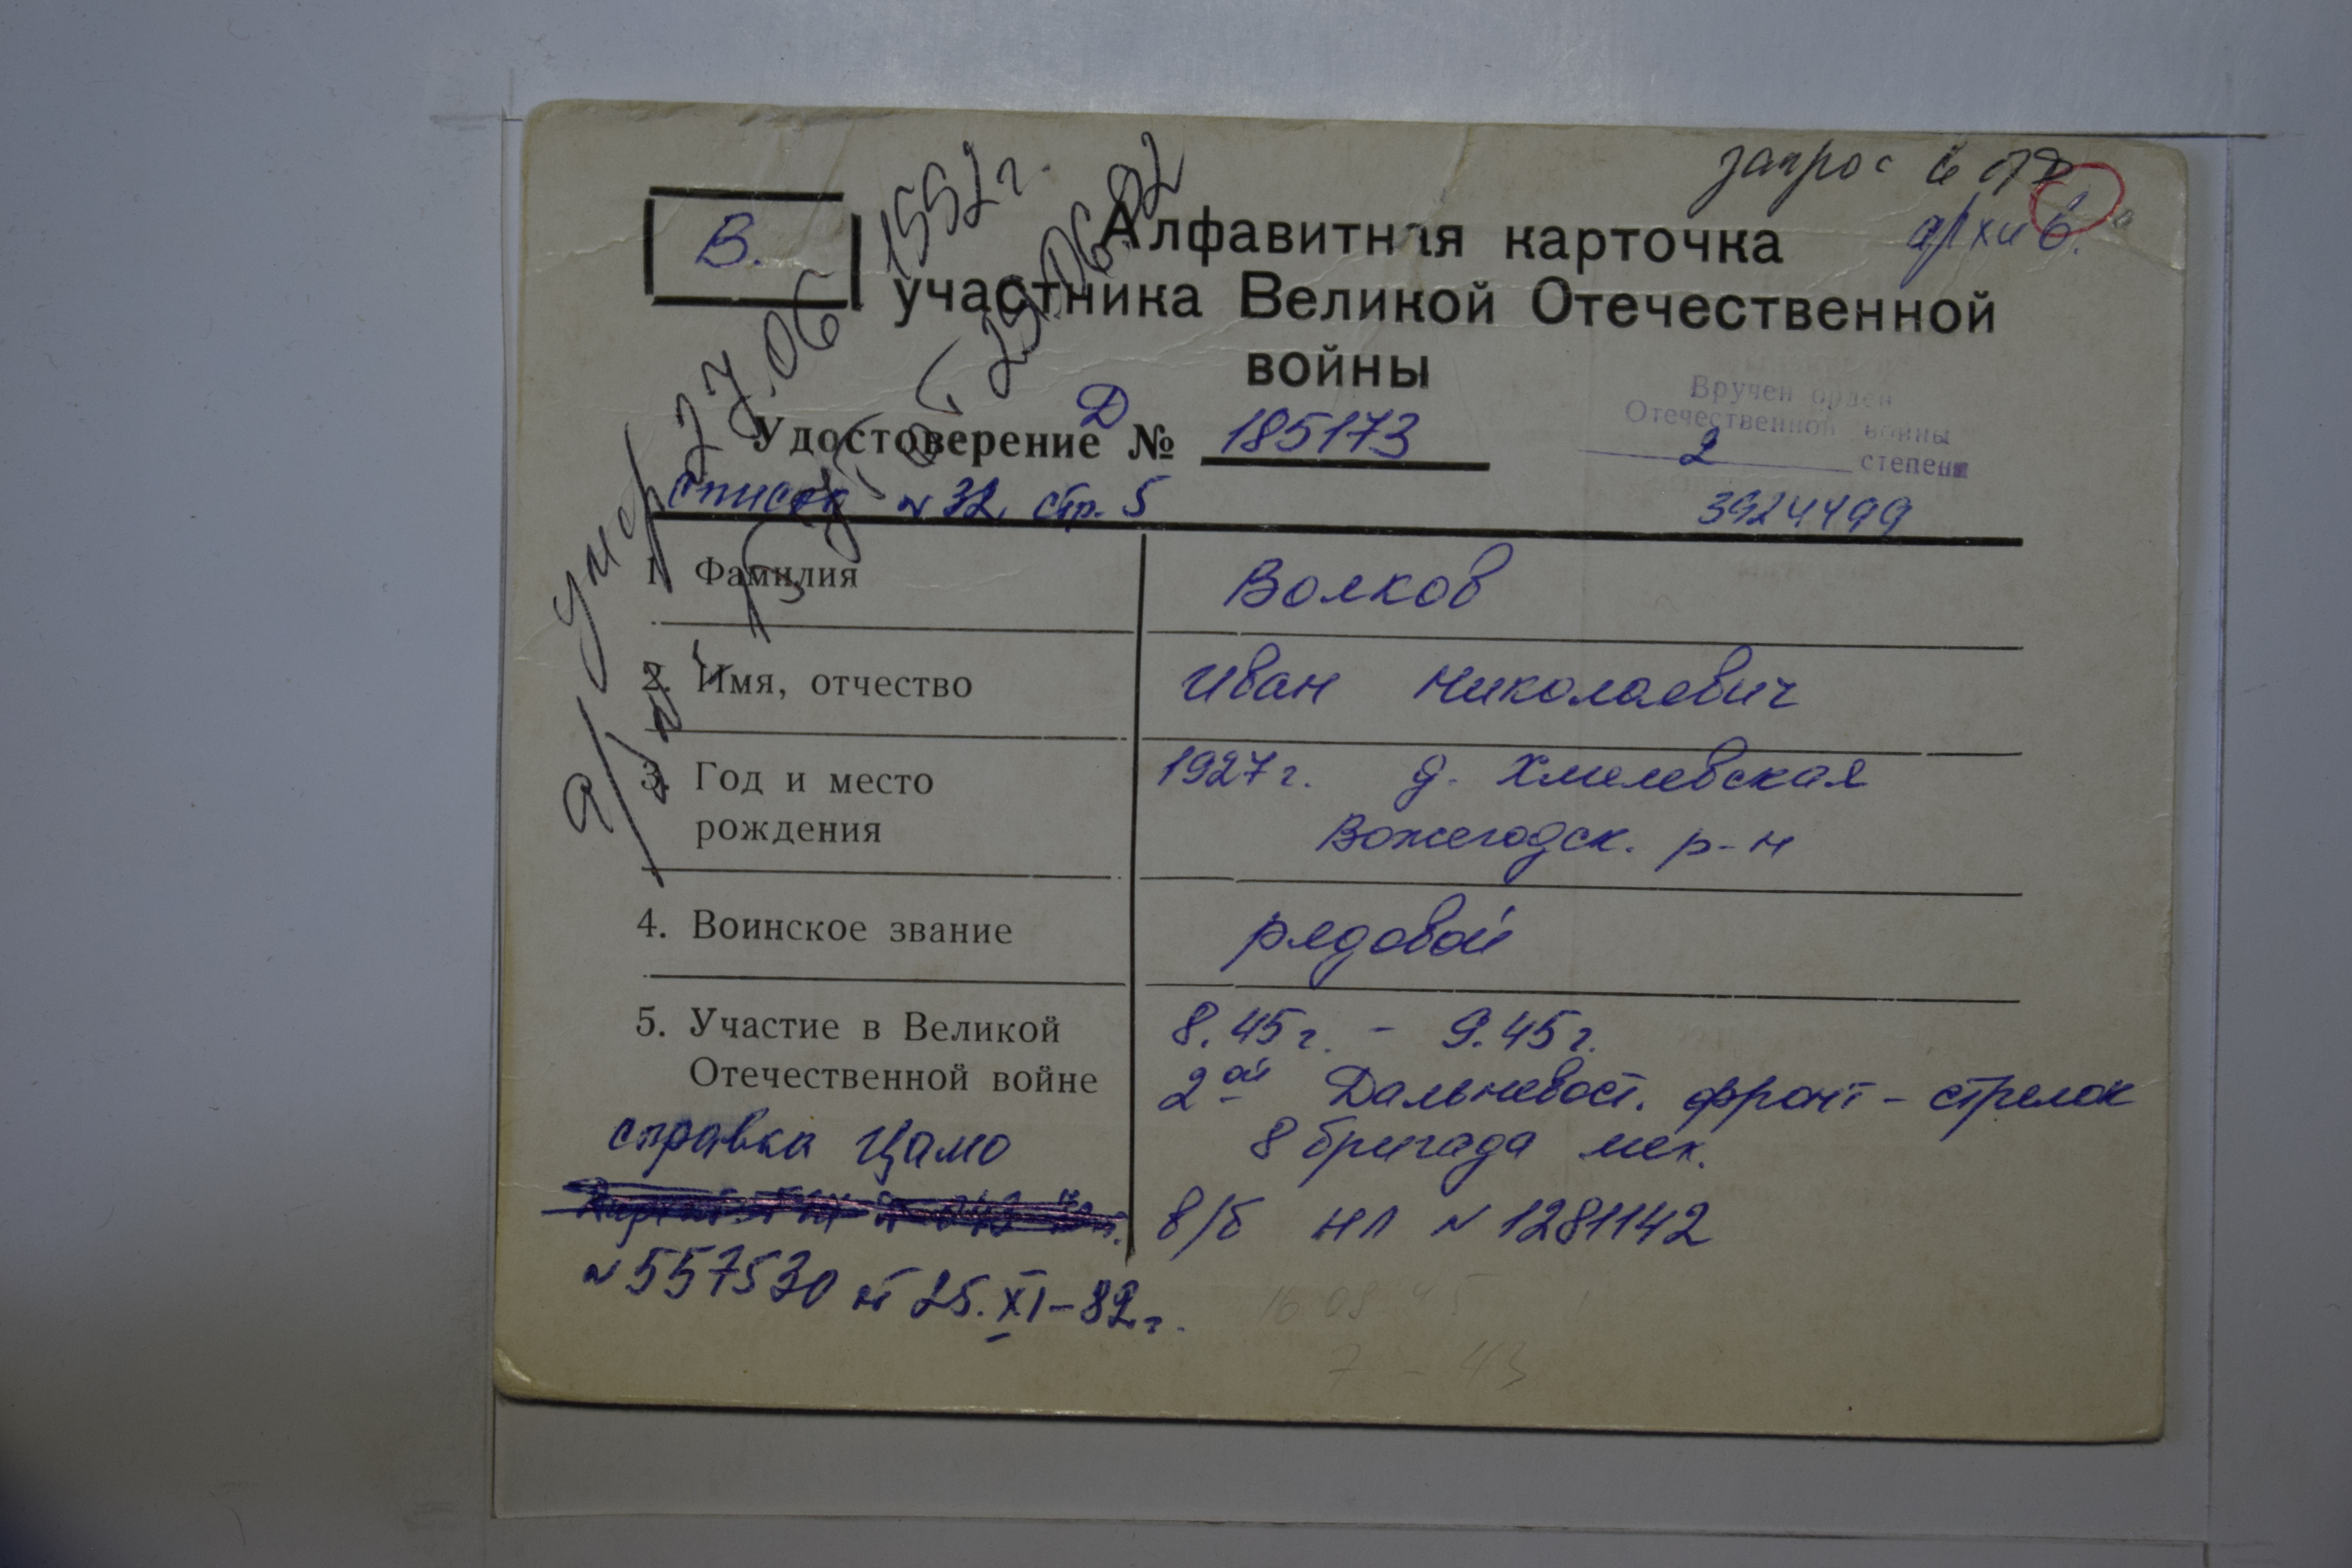 запрос в
архив.
В.
Алфавитная карточка
участника Великой Отечественной
войны
Вручен орден
Отечественной войны
2 степени
3924499
Удостоверение Д № 185173
список № 32 стр. 5
умер 27.06 1992г.
от 29.06.92
1. Фамилия Волков
2. Имя, отчество Иван Николаевич
3. Год и место 1927г. д. Хмелевская
рождения Вожегодск. р-н
4. Воинское звание рядовой
5. Участие в Великой 8.45г. - 9.45г.
Отечественной войне 2ой Дальневост. фронт - стрелок
справка Цамо 8 бригада мех.
в/б НЛ № 1281142
№ 557530 от 25.XI-82г.
16 08 45
7 - 43